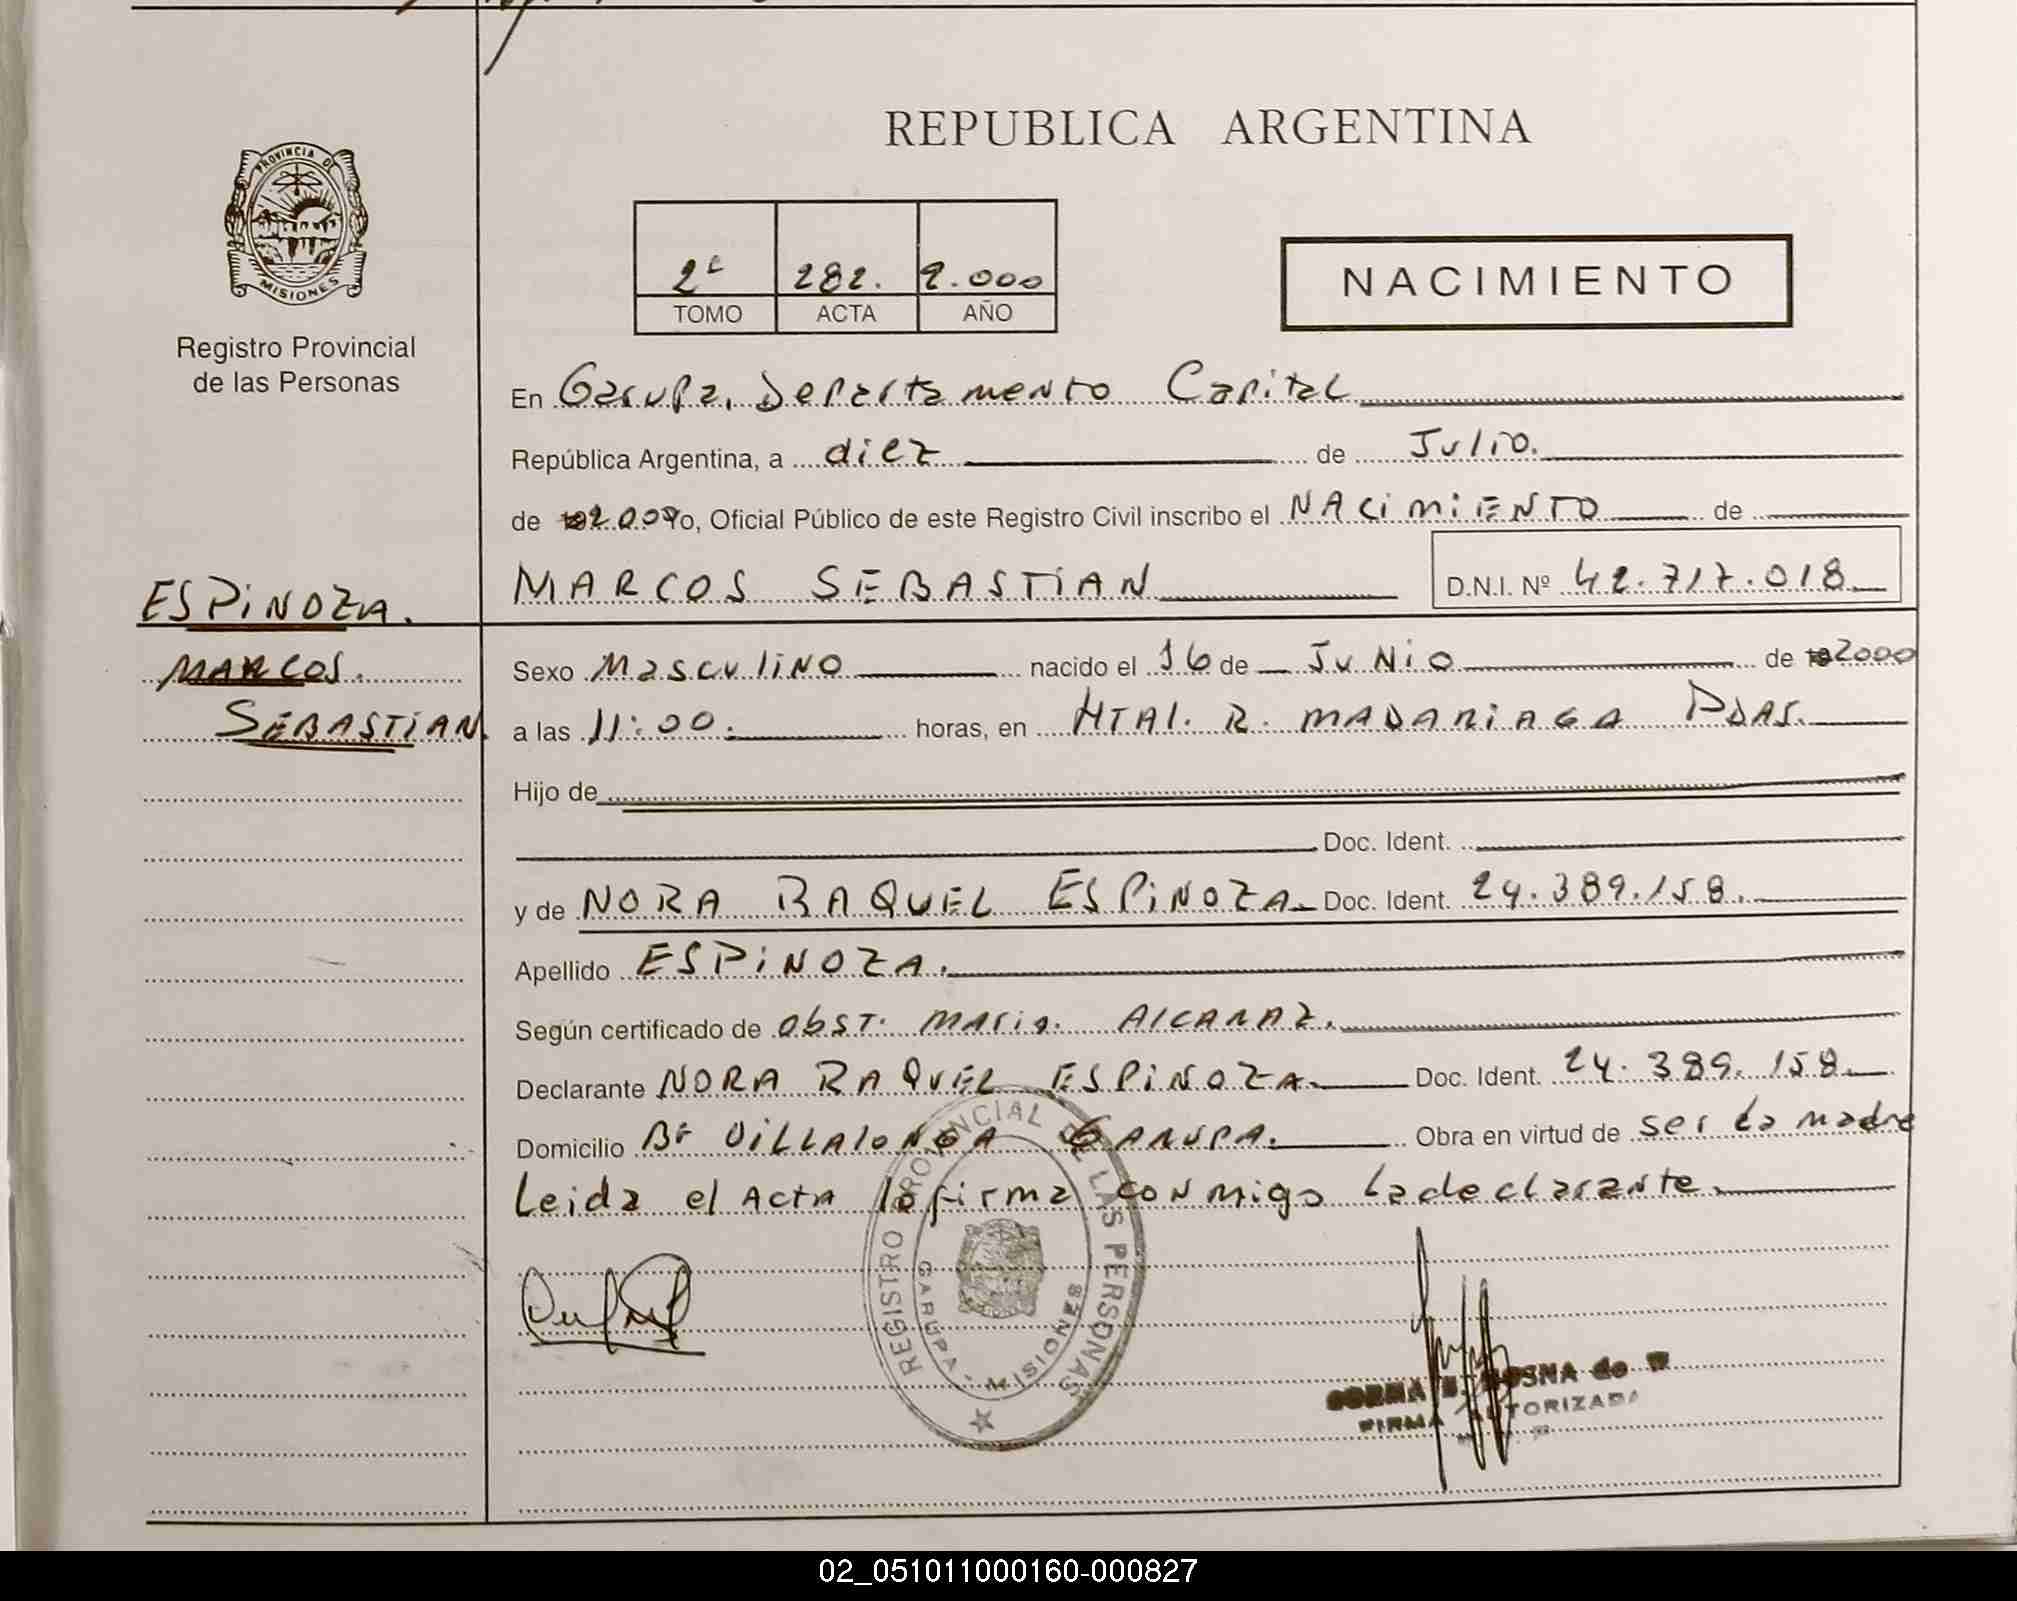 REPUBLICA ARGENTINA
PROVINCIA DE
MISIONES
Registro Provincial
de las Personas
2º 282. 2.000
TOMO ACTA AÑO
NACIMIENTO
En Garupa, Departamento Capital
República Argentina, a diez de Julio.
de 2.000 Yo, Oficial Público de este Registro Civil inscribo el NACIMIENTO de
MARCOS SEBASTIAN D.N.I. Nº 42.717.018
ESPINOZA.
MARCOS.
SEBASTIAN.
Sexo Masculino nacido el 16 de Junio de 2000
a las 11:00. horas, en HTAL. R. MADARIAGA PDAS.
Hijo de
Doc. Ident.
y de NORA RAQUEL ESPINOZA. Doc. Ident. 24.389.158.
Apellido ESPINOZA.
Según certificado de obST. Maria. AlCARAZ.
Declarante NORA RAQUEL ESPINOZA. Doc. Ident. 24.389.158.
Domicilio Bº VILLALONGA GARUPA. Obra en virtud de ser La madre
Leida el Acta la firma conmigo La declarante.
REGISTRO PROVINCIAL DE LAS PERSONAS
GARUPA - MISIONES
FIRMA AUTORIZADA
02_051011000160-000827